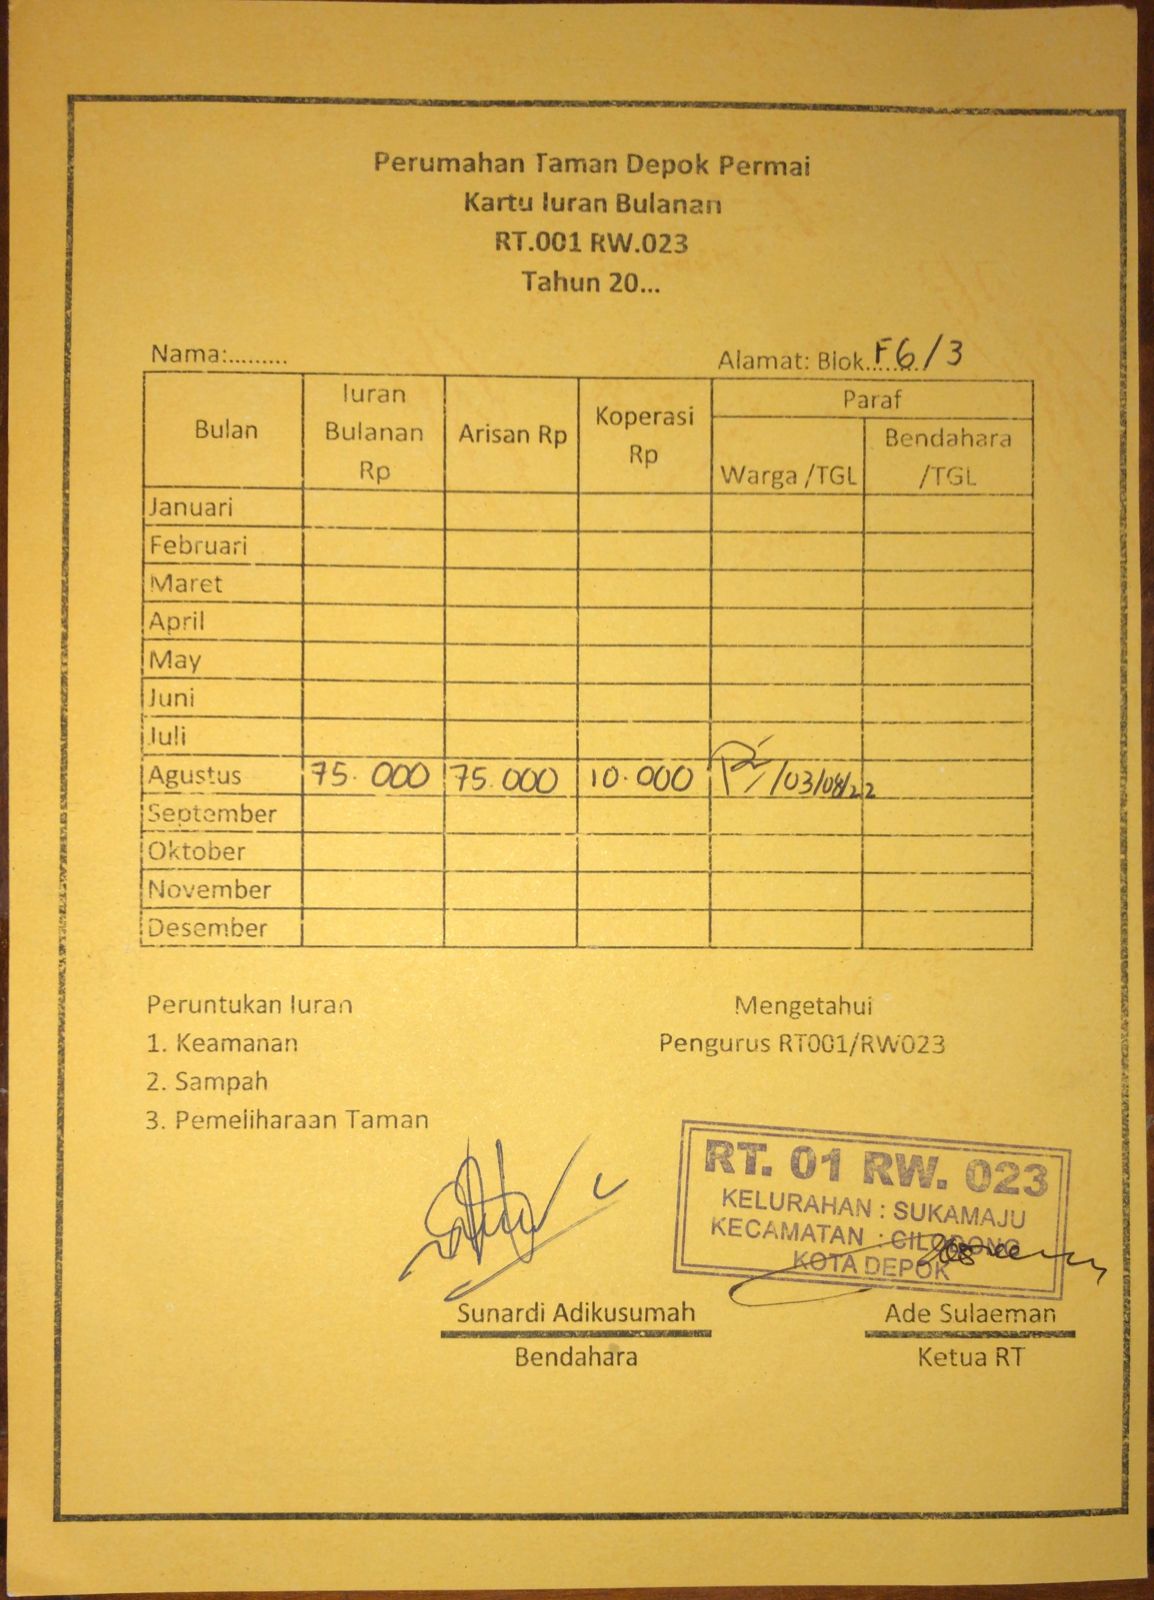 Perumahan Taman Depok Permai
Kartu Iuran Bulanan
RT.001 RW.023
Tahun 20...
Nama:......... Alamat: Blok.........F6/3
Bulan Iuran Bulanan Rp Arisan Rp Koperasi Rp Paraf
Warga /TGL Bendahara /TGL
Januari
Februari
Maret
April
May
Juni
Juli
Agustus 75.000 75.000 10.000 /03/08/22
September
Oktober
November
Desember
Peruntukan Iuran
1. Keamanan
2. Sampah
3. Pemeliharaan Taman
Mengetahui
Pengurus RT001/RW023
RT. 01 RW. 023
KELURAHAN : SUKAMAJU
KECAMATAN : CILODONG
KOTA DEPOK
Sunardi Adikusumah
Bendahara
Ade Sulaeman
Ketua RT